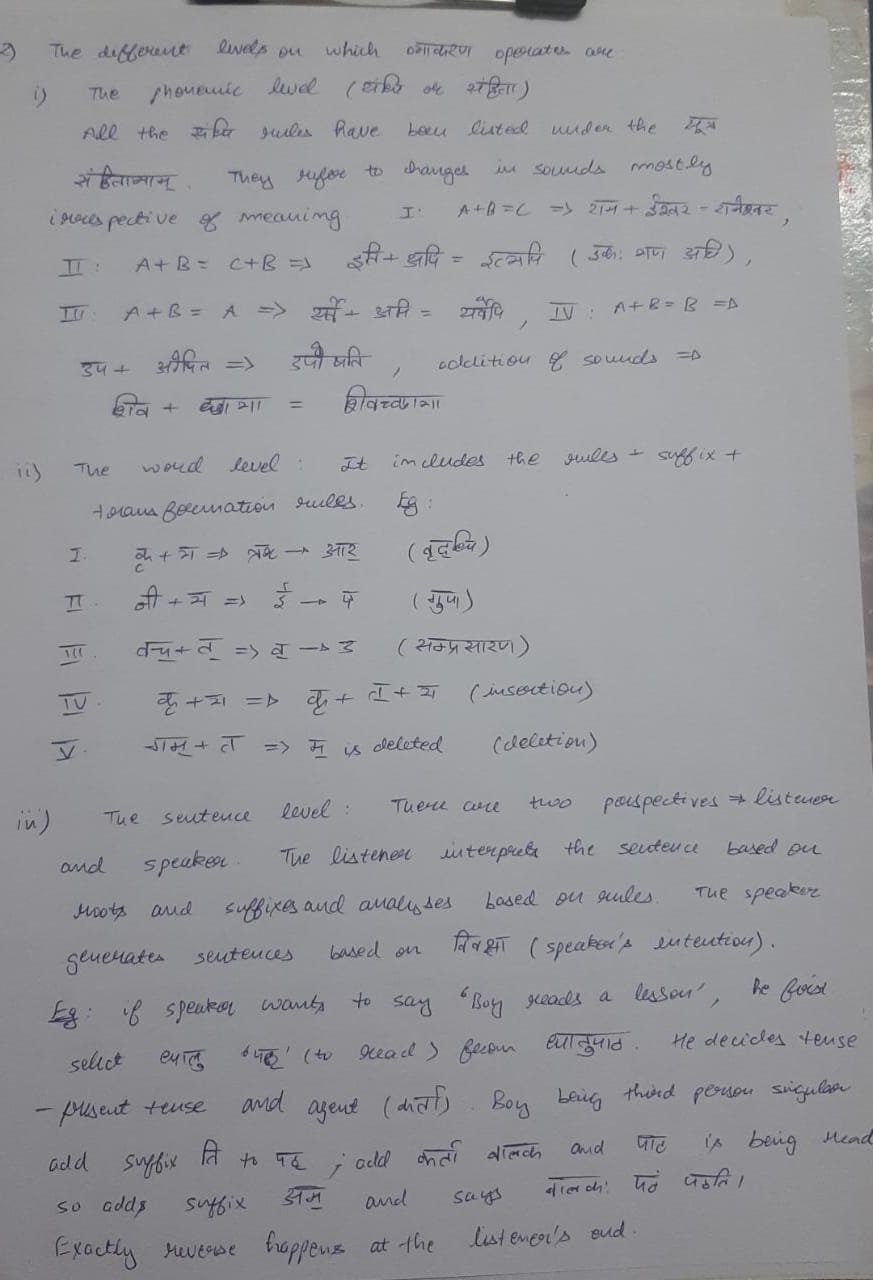 2) The different levels on which व्याकरण operates are
i) The phonemic level (संधि or संहिता)
All the संधि rules have been listed under the सूत्र
संहितायाम्. They refer to changes in sounds mostly
irrespective of meaning. I: A+B=C => राम + ईश्वर = रामेश्वर,
II: A+B = C+B => इति + अपि = इत्यपि (इकः यण अचि),
III: A+B = A => + अपि = , IV: A+B = B =>
उप + => , addition of sounds =>
शिव + छाया = शिवच्छाया
ii) The word level: It includes the rules + suffix +
transformation rules. Eg:
I. कृ + य => ऋ → आर् (वृद्धि)
II. नी + य => ई → ए (गुण)
III. वच् + त् => व् → उ (सम्प्रसारण)
IV. कृ + य => कृ + त् + य (insertion)
V. गम् + त => म् is deleted (deletion)
iii) The sentence level: There are two perspectives => listener
and speaker. The listener interprets the sentence based on
roots and suffixes and analyses based on rules. The speaker
generates sentences based on विवक्षा (speaker's intention).
Eg: if speaker wants to say "Boy reads a lesson', he first
select धातु 'पठ्' (to read) from धातुपाठ. He decides tense
- present tense and agent (कर्ता). Boy being third person singular
add suffix ति to पठ् ; add कर्ता बालक and पाठ is being read
so adds suffix अम् and says बालकः पठं पठति।
Exactly reverse happens at the listener's end.